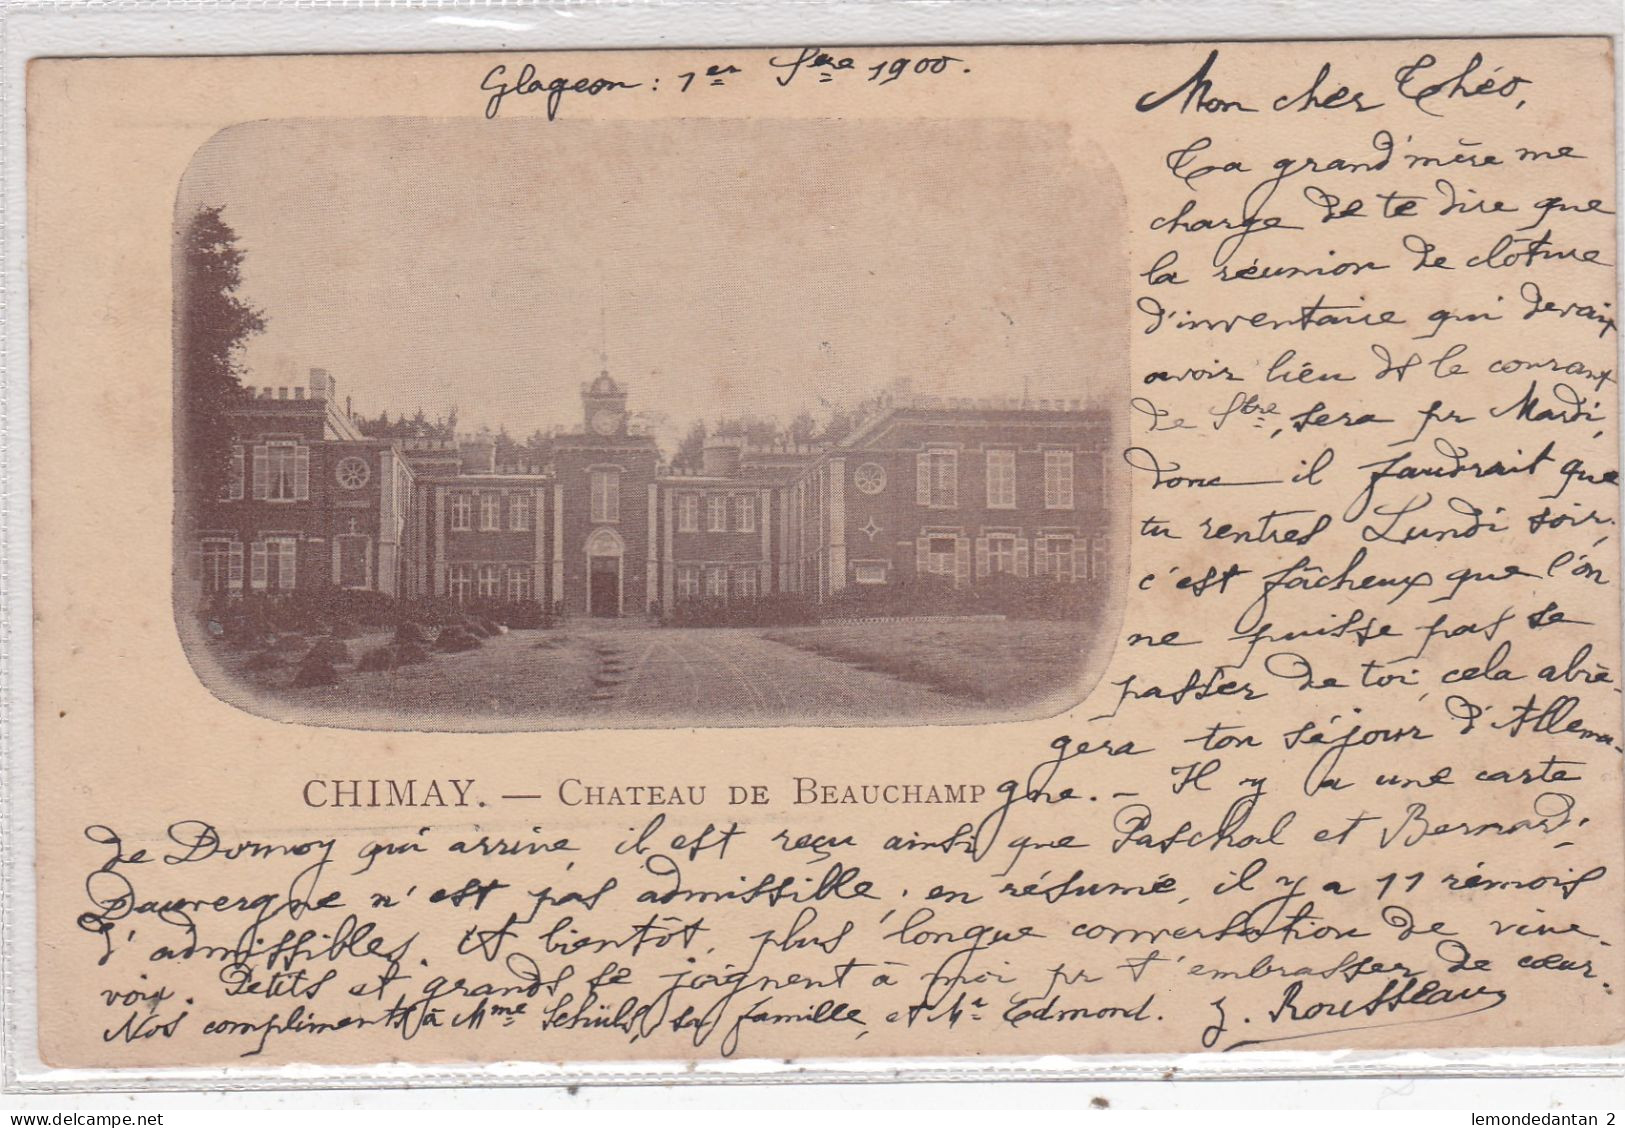 Glageon : 1er Sbre 1900.
Mon cher Théo,
Ta grand'mère me
charge de te dire que
la réunion de clôture
d'inventaire qui devait
avoir lieu ds le courant
de Sbre, sera pr Mardi,
donc il faudrait que
tu rentres Lundi soir,
c'est fâcheux que l'on
ne puisse pas se
passer de toi, cela abrè-
gera ton séjour d'Allema-
gne. - Il y a une carte
CHIMAY. — CHATEAU DE BEAUCHAMP
de Durnoy qui arrive, il est reçu ainsi que Paschal et Bernard.
Dauvergne n'est pas admissible, en résumé, il y a 11 rémois
d'admissibles. A bientôt, plus longue conversation de vive-
voix. Petits et grands se joignent à moi pr t'embrasser de cœur.
Nos compliments à Mme Schüls, sa famille, et Mr Edmond. Rousseau
lemondedantan 2